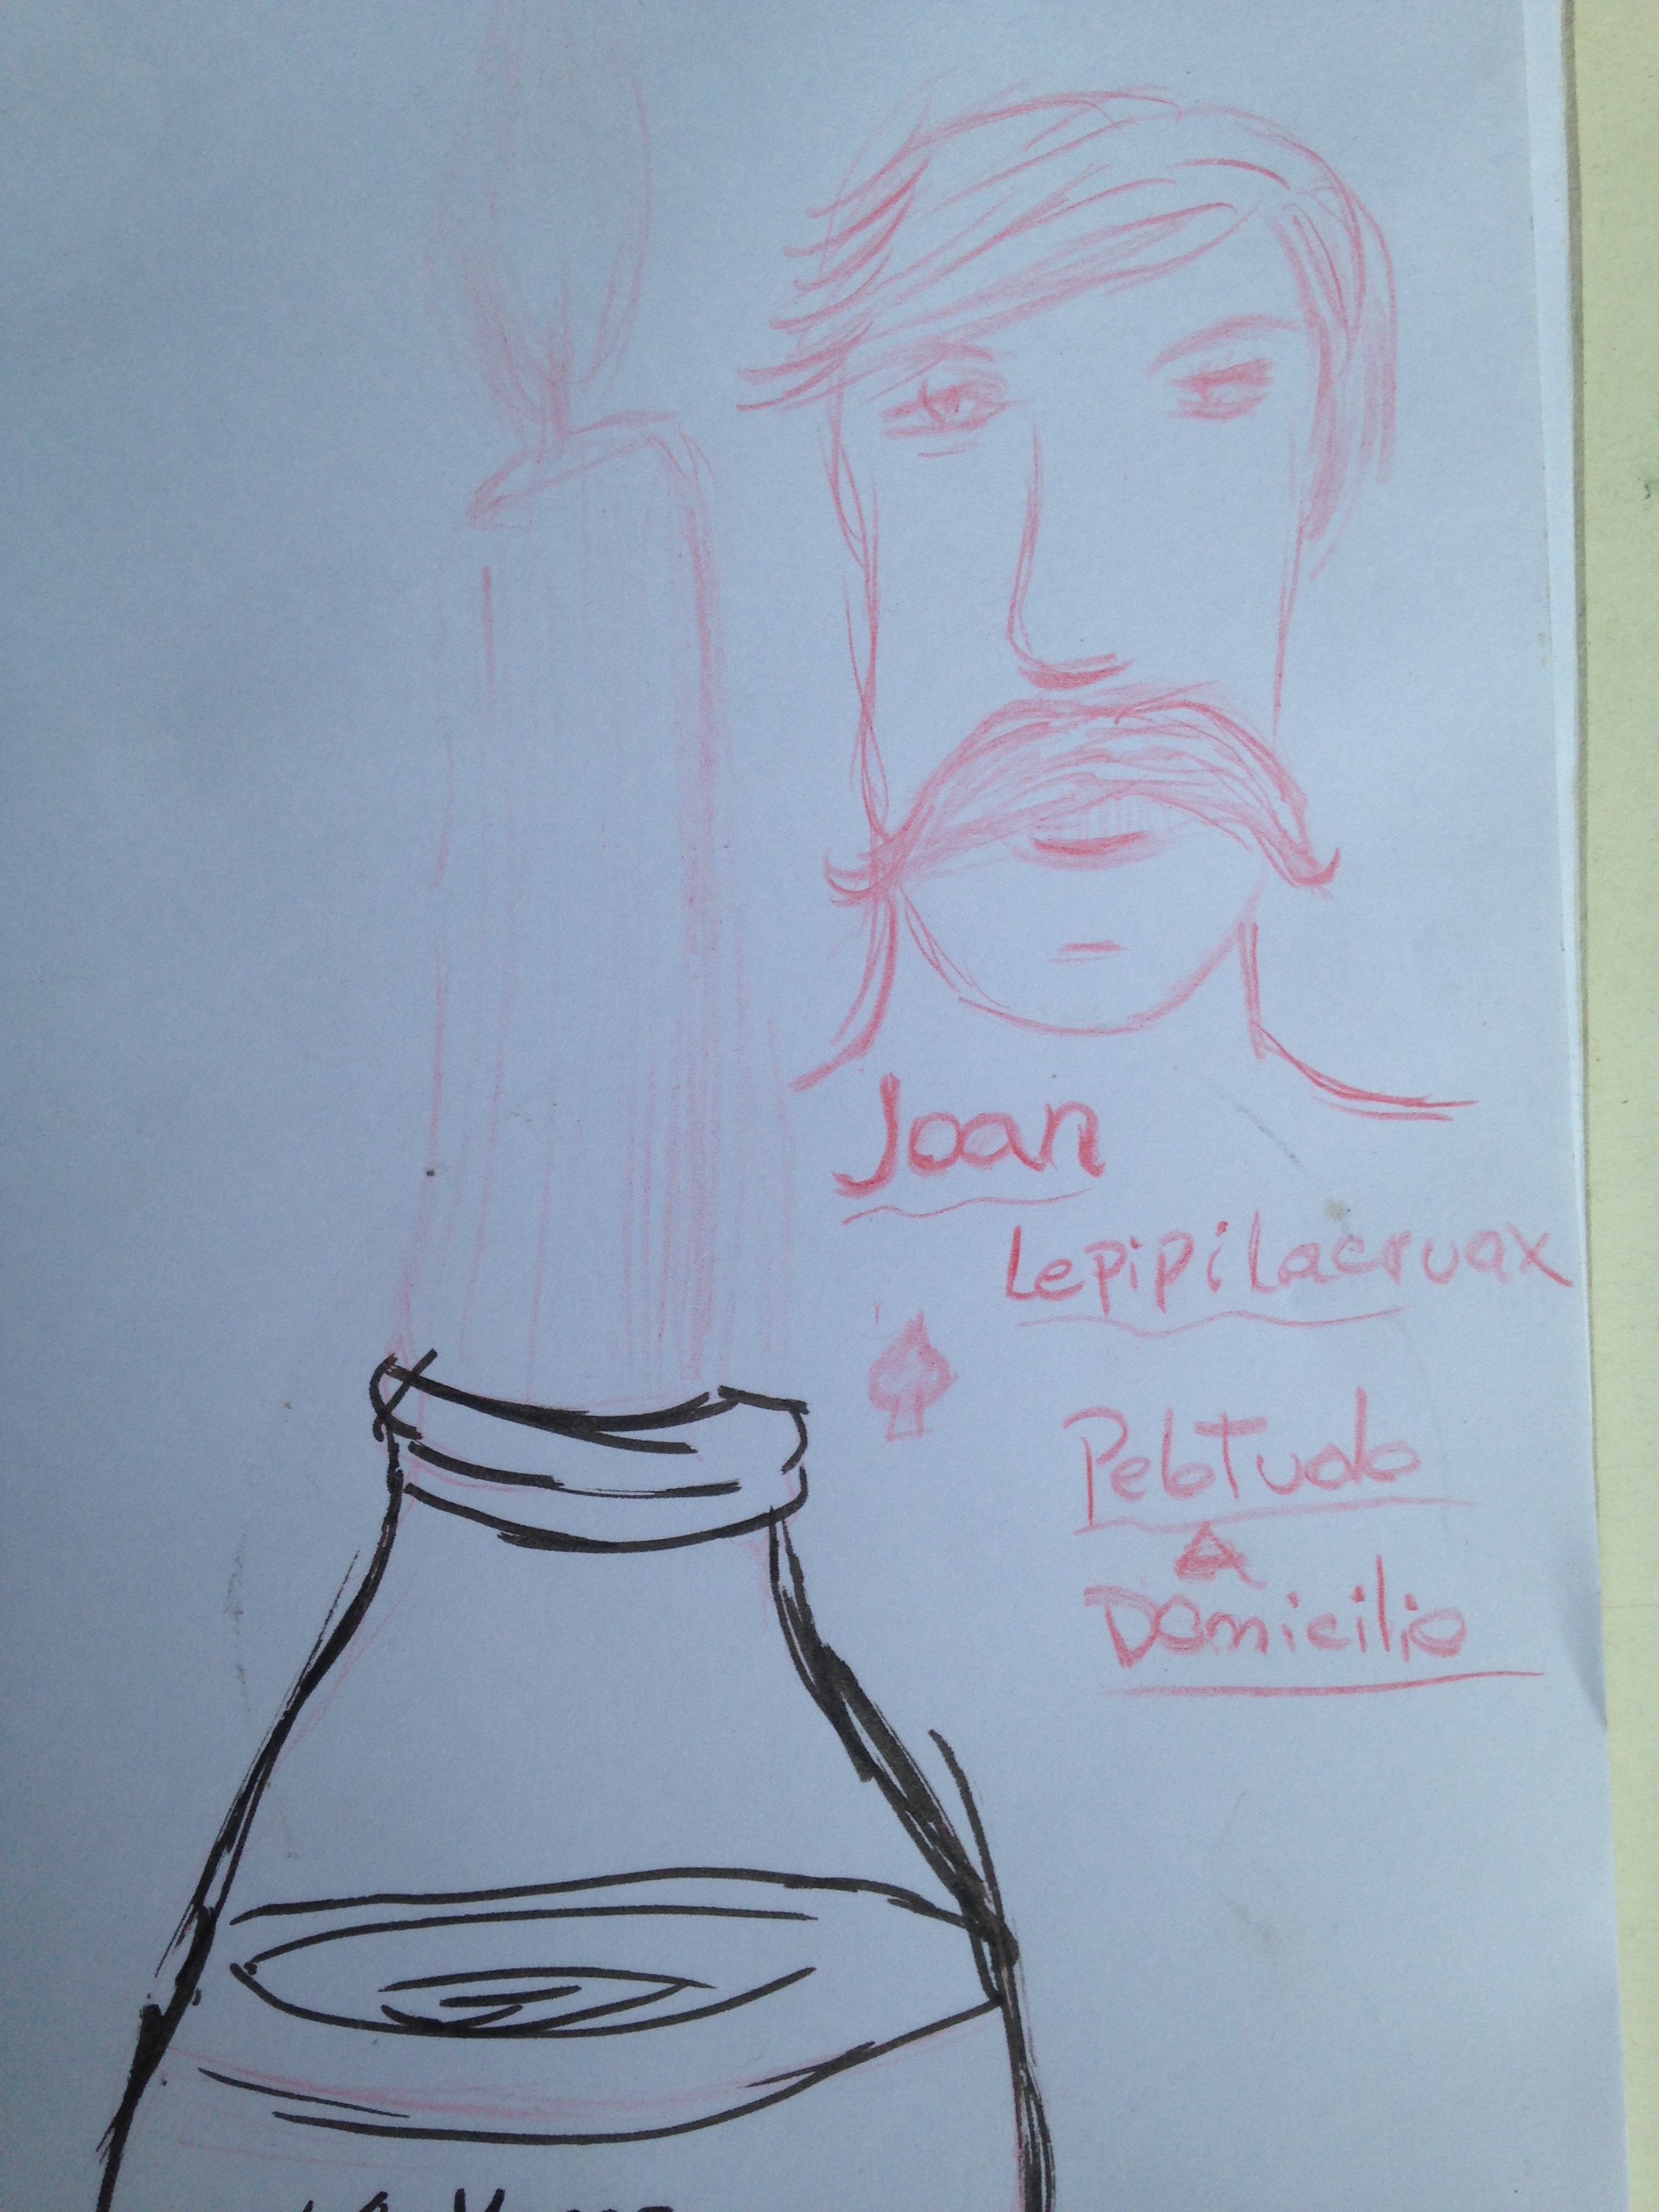 Joan
Lepipilacruax
PeloTudo
A
Domicilio